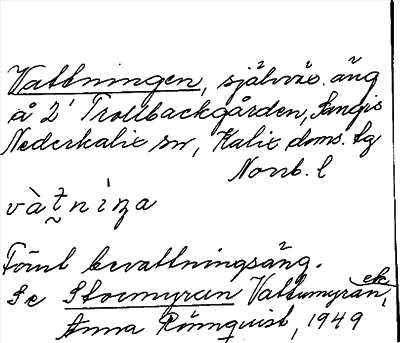 Vattningen, självväx. äng
å 2' Trollbackgården, Sangis
Nederkalix sn, Kalix doms. lg
Norrb. l
Förut bevattningsäng.
Se Stormyran Vattumyran, etc.
Anna Rönnquist, 1949